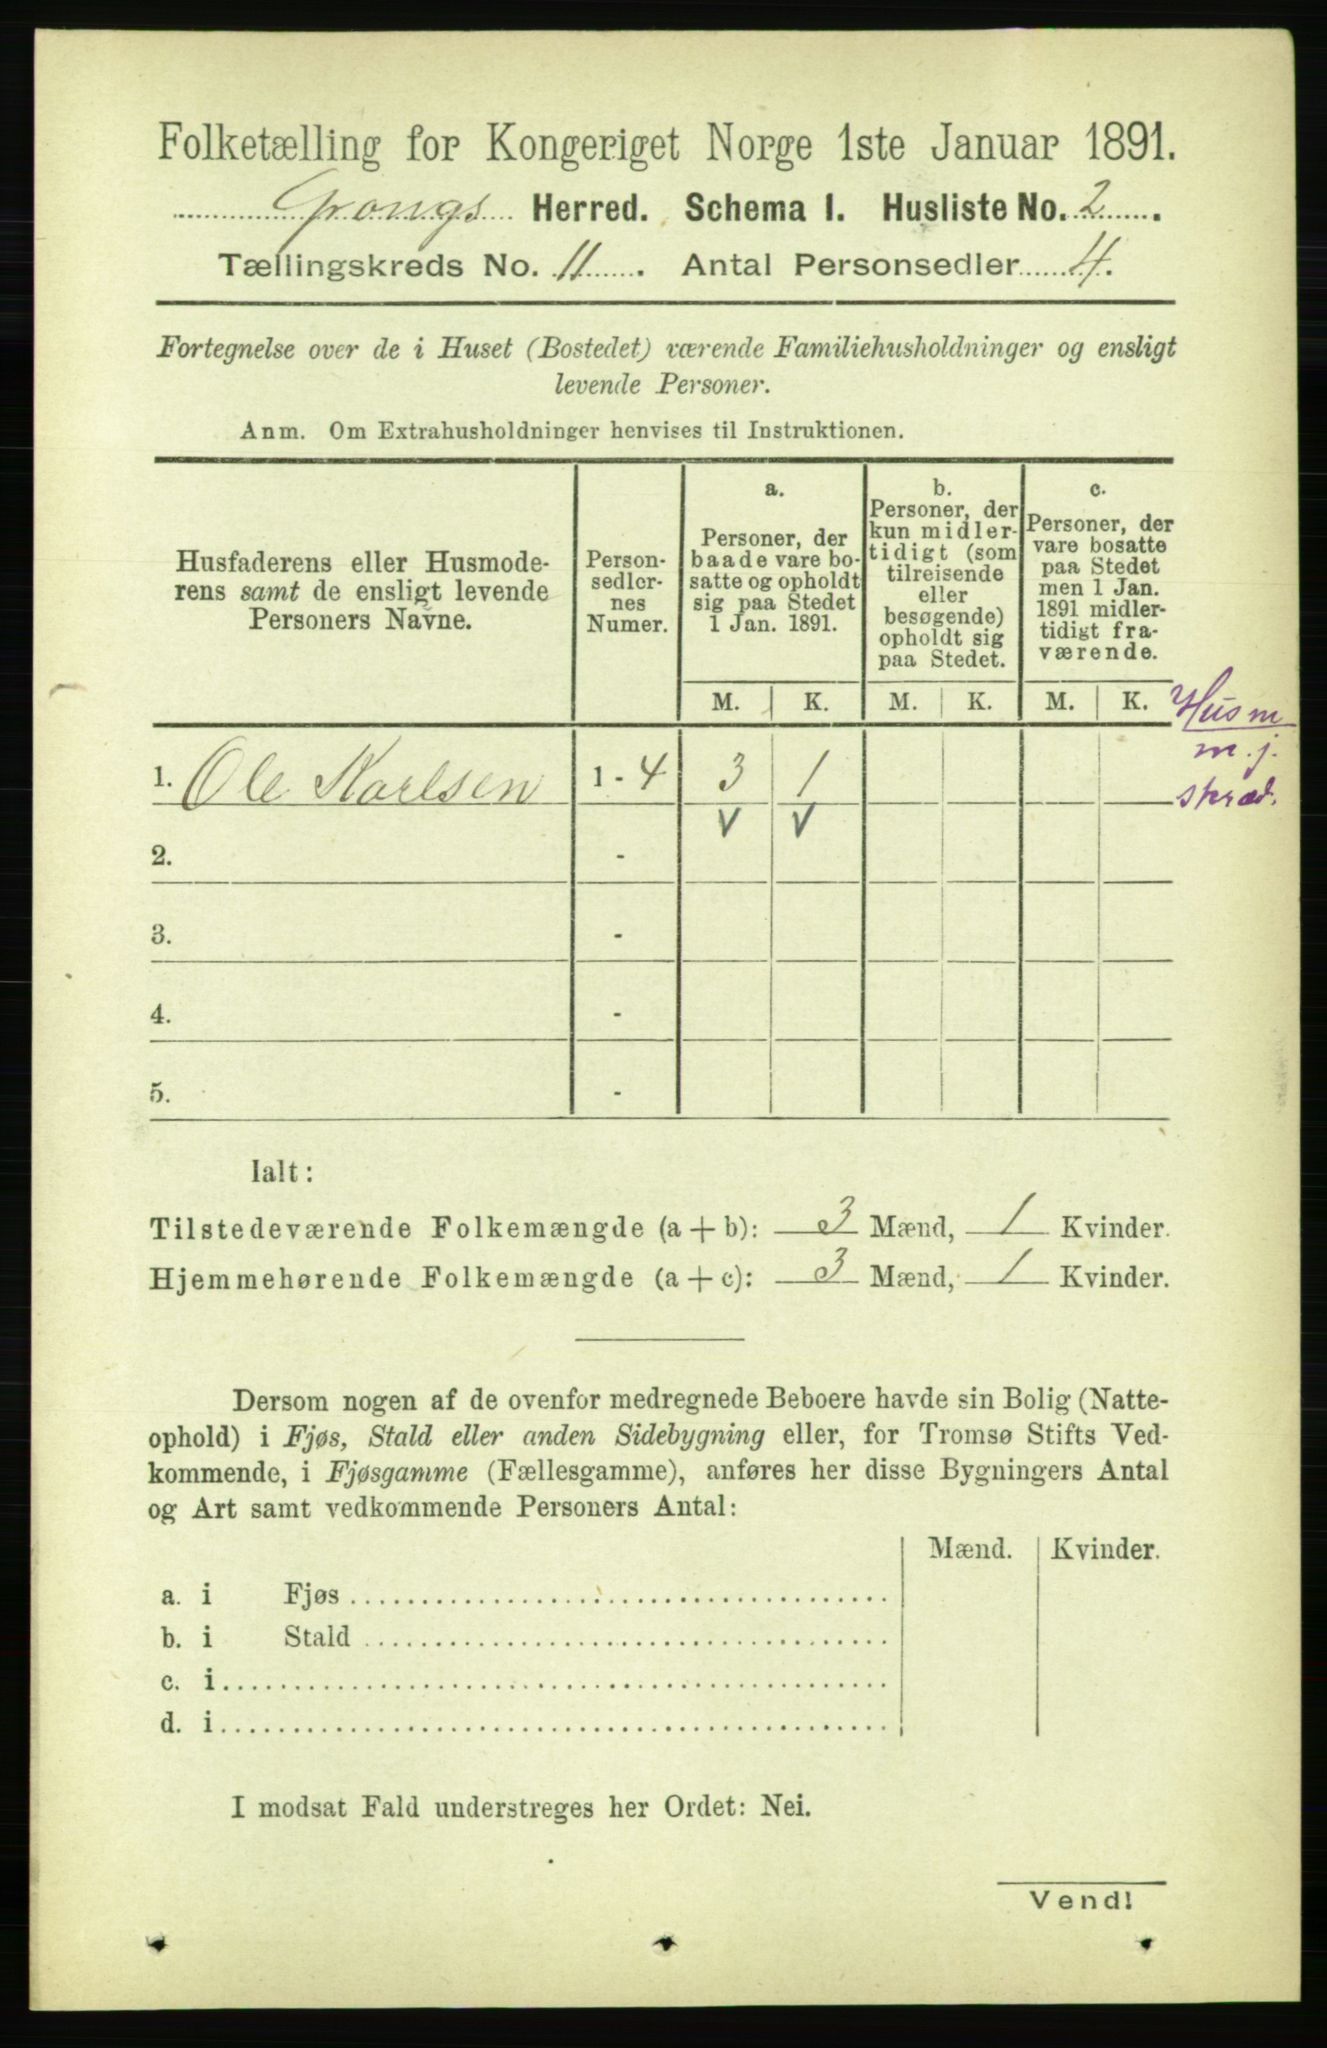 Folketælling for Kongeriget Norge 1ste Januar 1891.
Grongs Herred. Schema 1. Husliste No. 2.
Tællingskreds No. 11. Antal Personsedler 4.
Fortegnelse over de i Huset (Bostedet) værende Familiehusholdninger og ensligt
levende Personer.
Anm. Om Extrahusholdninger henvises til Instruktionen.
Husfaderens eller Husmode-
rens samt de ensligt levende
Personers Navne.
Person-
sedler-
nes
Numer.
a.
Personer, der
baade vare bo-
satte og opholdt
sig paa Stedet
1 Jan. 1891.
b.
Personer, der
kun midler-
tidigt (som
tilreisende
eller
besøgende)
opholdt sig
paa Stedet.
c.
Personer, der
vare bosatte
paa Stedet
men 1 Jan.
1891 midler-
tidigt fra-
værende.
M. K. M. K. M. K.
Husm
m. j.
skræd.
1. Ole Karlsen 1 - 4 3 1
V V
2. -
3. -
4. -
5. -
Ialt:
Tilstedeværende Folkemængde (a + b): 3 Mænd, 1 Kvinder.
Hjemmehørende Folkemængde (a + c): 3 Mænd, 1 Kvinder.
Dersom nogen af de ovenfor medregnede Beboere havde sin Bolig (Natte-
ophold) i Fjøs, Stald eller anden Sidebygning eller, for Tromsø Stifts Ved-
kommende, i Fjøsgamme (Fællesgamme), anføres her disse Bygningers Antal
og Art samt vedkommende Personers Antal:
Mænd. Kvinder.
a. i Fjøs
b. i Stald
c. i
d. i
I modsat Fald understreges her Ordet: Nei.
Vend!